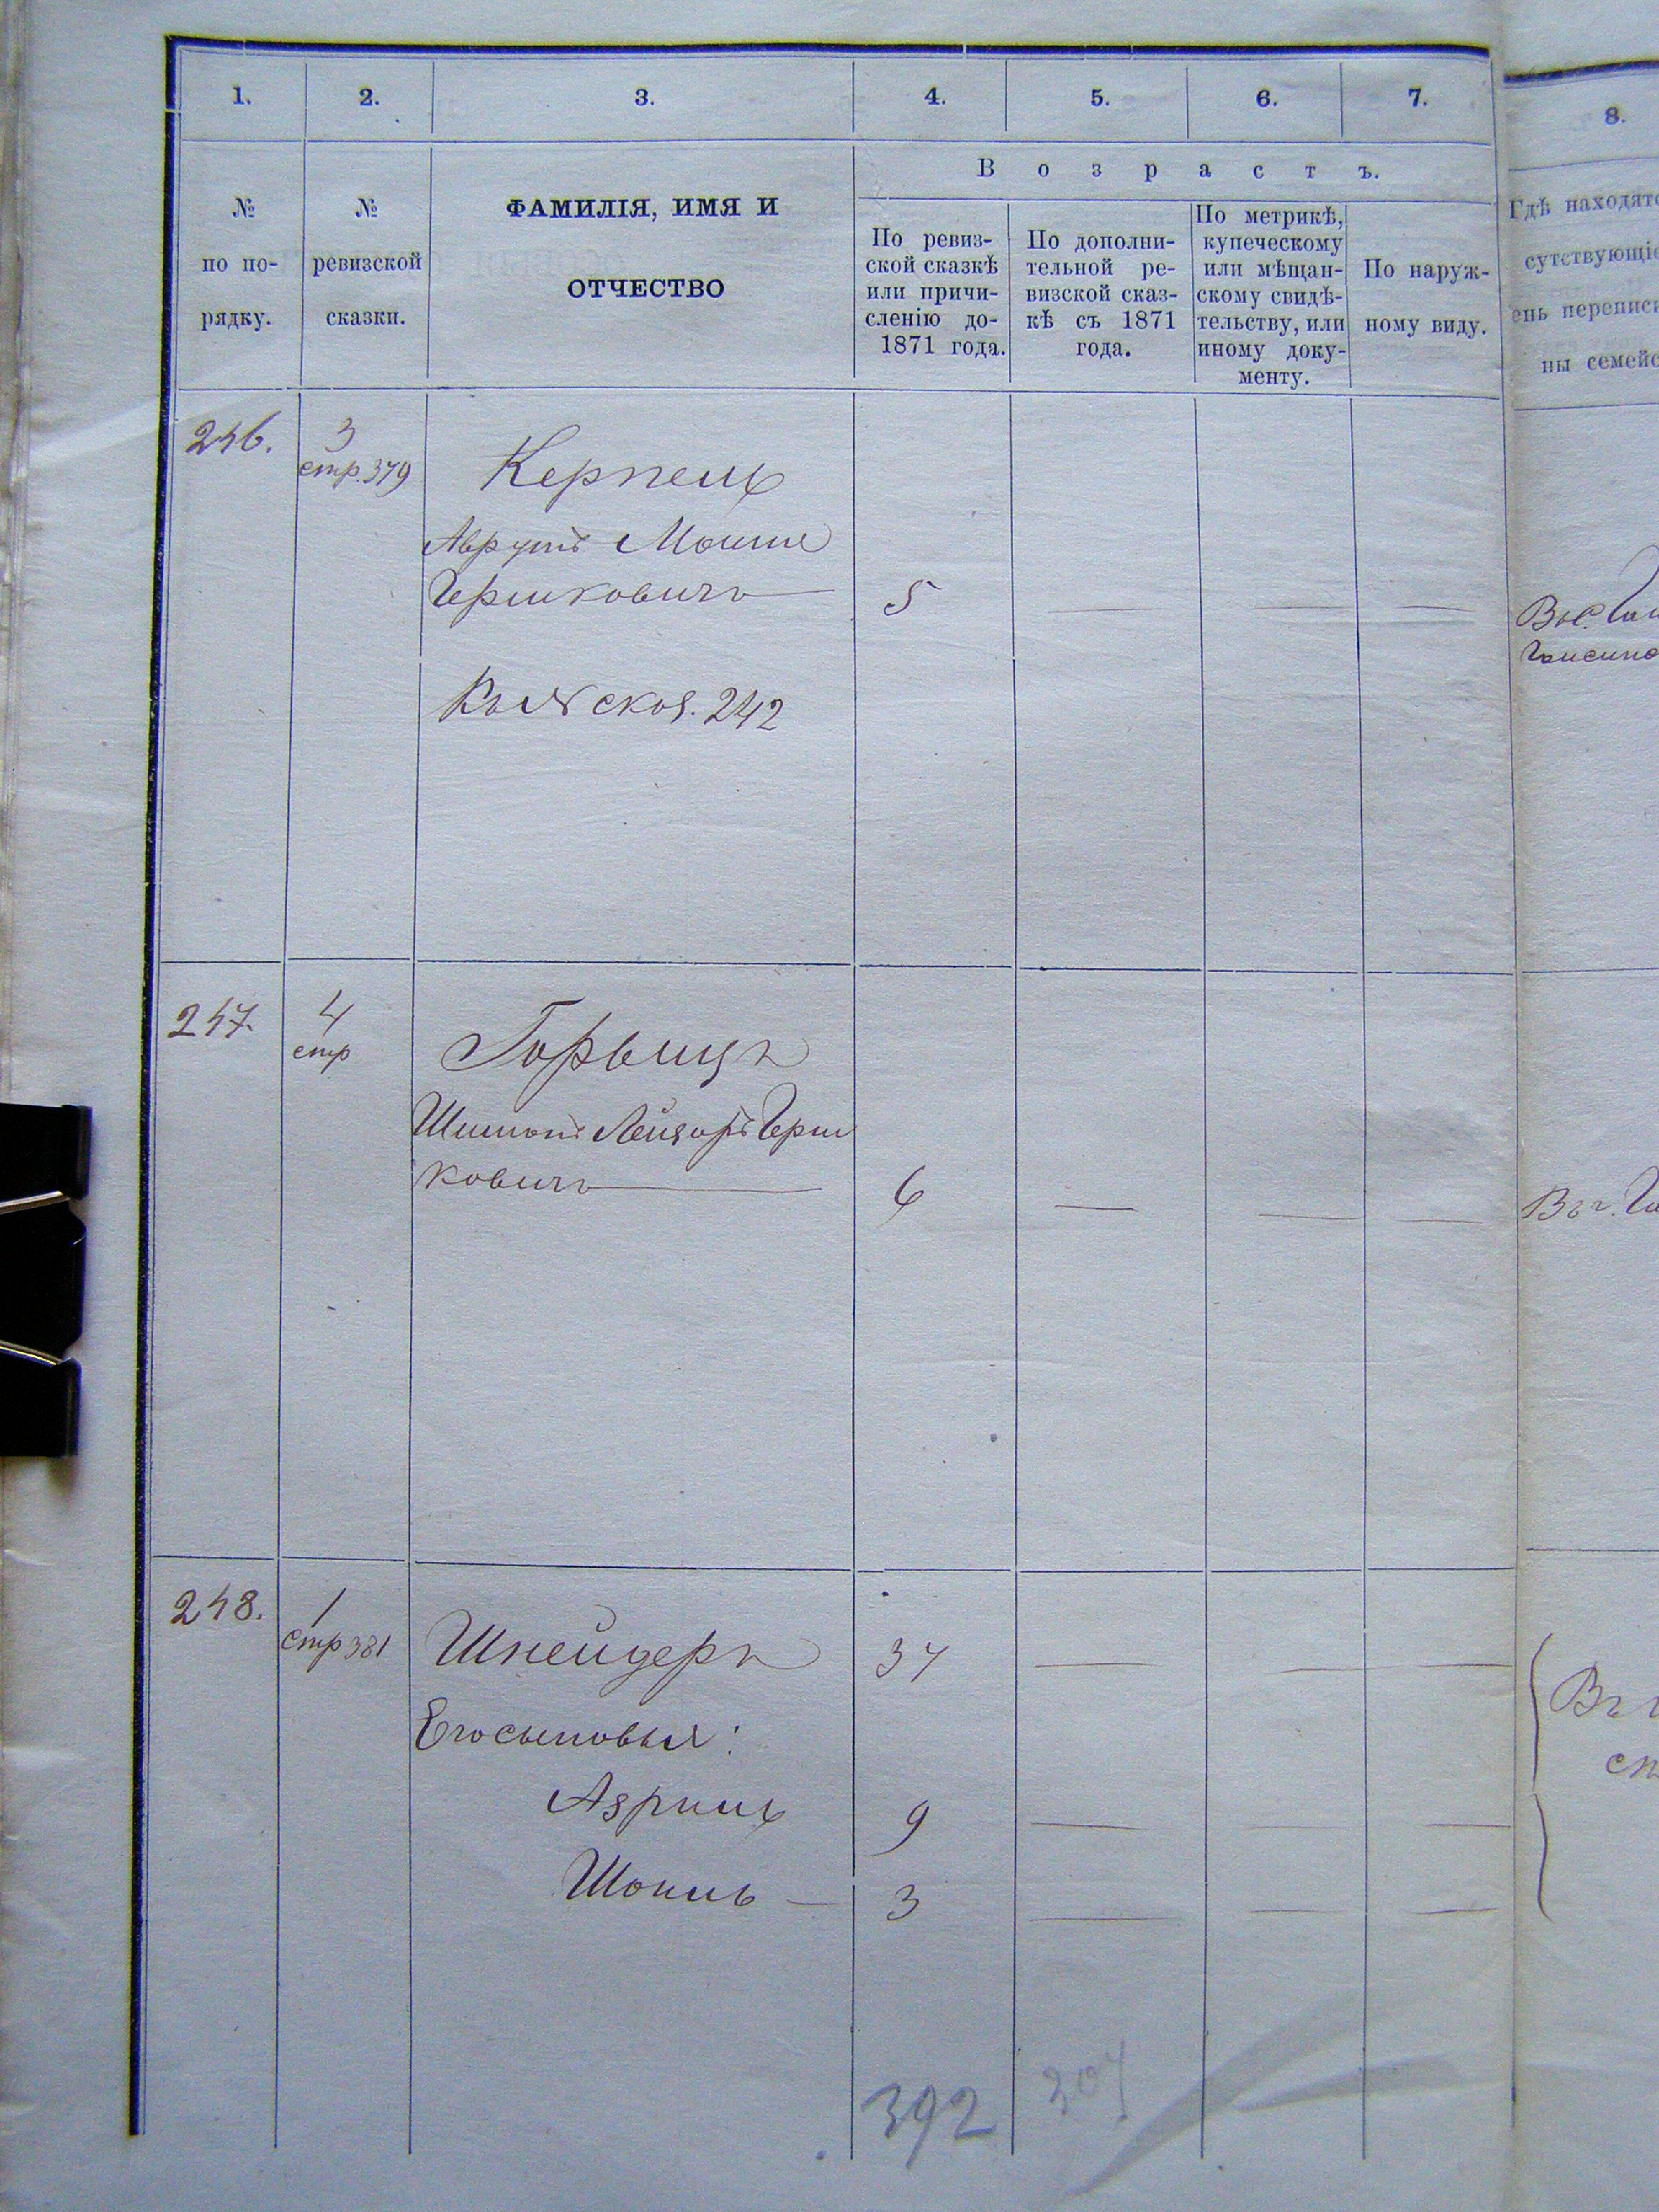 1.
2.
3.
4.
5.
6.
7.
8.
№
по по-
рядку.
№
ревизской
сказки.
ФАМИЛІЯ, ИМЯ И
ОТЧЕСТВО
Возрастъ.
По ревиз-
ской сказкѣ
или причи-
сленію до-
1871 года.
По дополни-
тельной ре-
визской сказ-
кѣ съ 1871
года.
По метрикѣ,
купеческому
или мѣщан-
скому свидѣ-
тельству, или
иному доку-
менту.
По наруж-
ному виду.
Гдѣ находятс
сутствующіе
ень переписи
ны семейс
246.
3
стр. 379
Керпель
Аврумъ Мошие
Гершковичъ
5
242
247.
4
стр
Горвицъ
Шимонъ Лейзоръ Герш
ковичъ
6
248.
1
стр 381
Шнейдеръ
37
Его сыновья:
Азриль
9
Шоиль
3
392